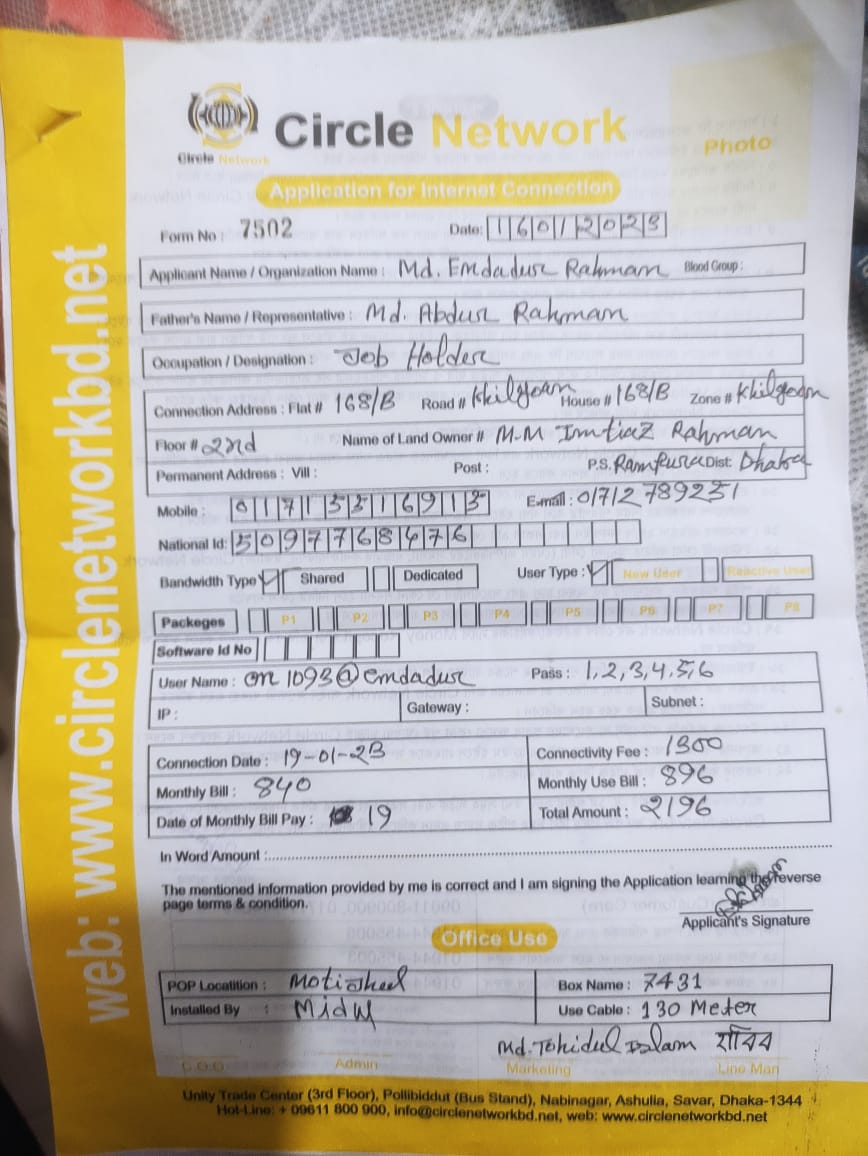 Circle Network
Circle Network
Photo
Application for Internet Connection
Form No : 7502 Date: 16012023
Applicant Name / Organization Name : Md. Emdadur Rahman Blood Group :
Father's Name / Representative : Md. Abdur Rahman
Occupation / Designation : Job Holder
Connection Address : Flat # 168/B Road # Khilgoan House # 168/B Zone # Khilgoan
Floor # 2nd Name of Land Owner # M.M Imtiaz Rahman
Permanent Address : Vill : Post : P.S. Rampura Dist: Dhaka
Mobile : 01715316913 E-mail : 01712789231
National Id: 5097768476
Bandwidth Type Shared Dedicated User Type : New User Reactive User
Packeges P1 P2 P3 P4 P5 P6 P7 P8
Software Id No
User Name : cn1093@emdadur Pass : 1,2,3,4,5,6
IP : Gateway : Subnet :
Connection Date : 19-01-23 Connectivity Fee : 1300
Monthly Bill : 840 Monthly Use Bill : 896
Date of Monthly Bill Pay : 19 Total Amount : 2196
In Word Amount :
The mentioned information provided by me is correct and I am signing the Application learning the reverse
page terms & condition.
Applicant's Signature
Office Use
POP Locatition : Motijheel Box Name : 7431
Installed By : Use Cable : 130 Meter
Md. Tohidul Islam রাবিব
C.O.O Admin Marketing Line Man
Unity Trade Center (3rd Floor), Pollibiddut (Bus Stand), Nabinagar, Ashulia, Savar, Dhaka-1344
Hot-Line: + 09611 800 900, info@circlenetworkbd.net, web: www.circlenetworkbd.net
web: www.circlenetworkbd.net